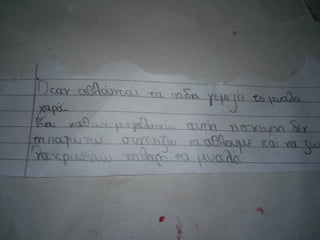 Όταν αθλούνται τα παδιά γεμίζει το μυαλό
χαρά
Και καθώς μεγαλώνω αυτή η σκέψη δεν
συνεχίζω να αθλούμαι και να ζω
καθαρό το μυαλό